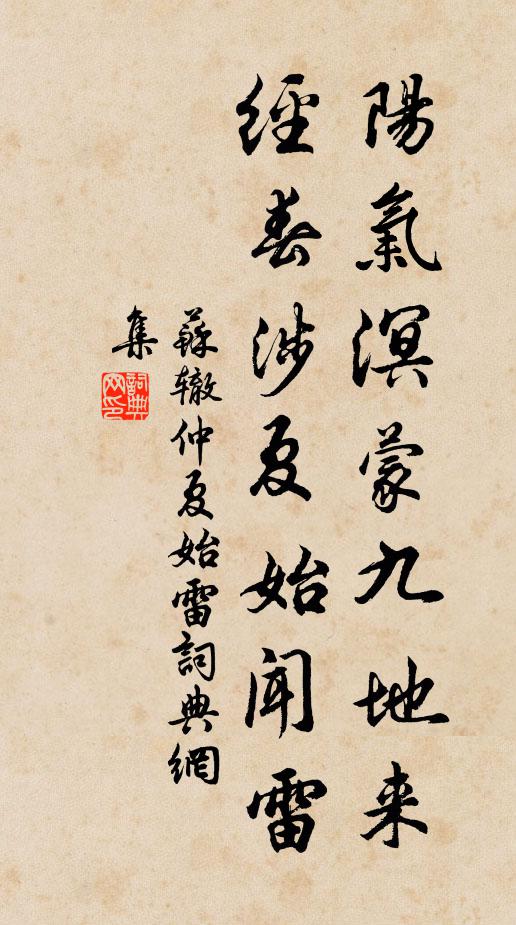 陽氣溟蒙九地来
經春涉夏始闻雷
蘇辙仲夏始雷詞典網
集
詞典
网印